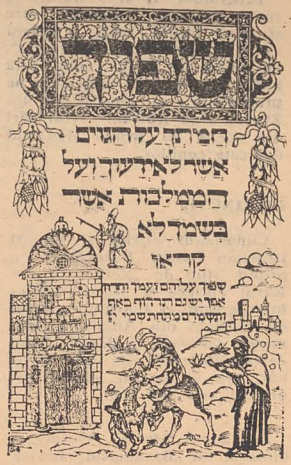 שפוך
חמתך על הגוים
אשר לא ידעוך ועל
הממלכות אשר
בשמך לא
קראו
שפוך עליהם זעמך וחרו
אפך ישיגם תרדוף באף
ותשמידם מתחת שמי יי